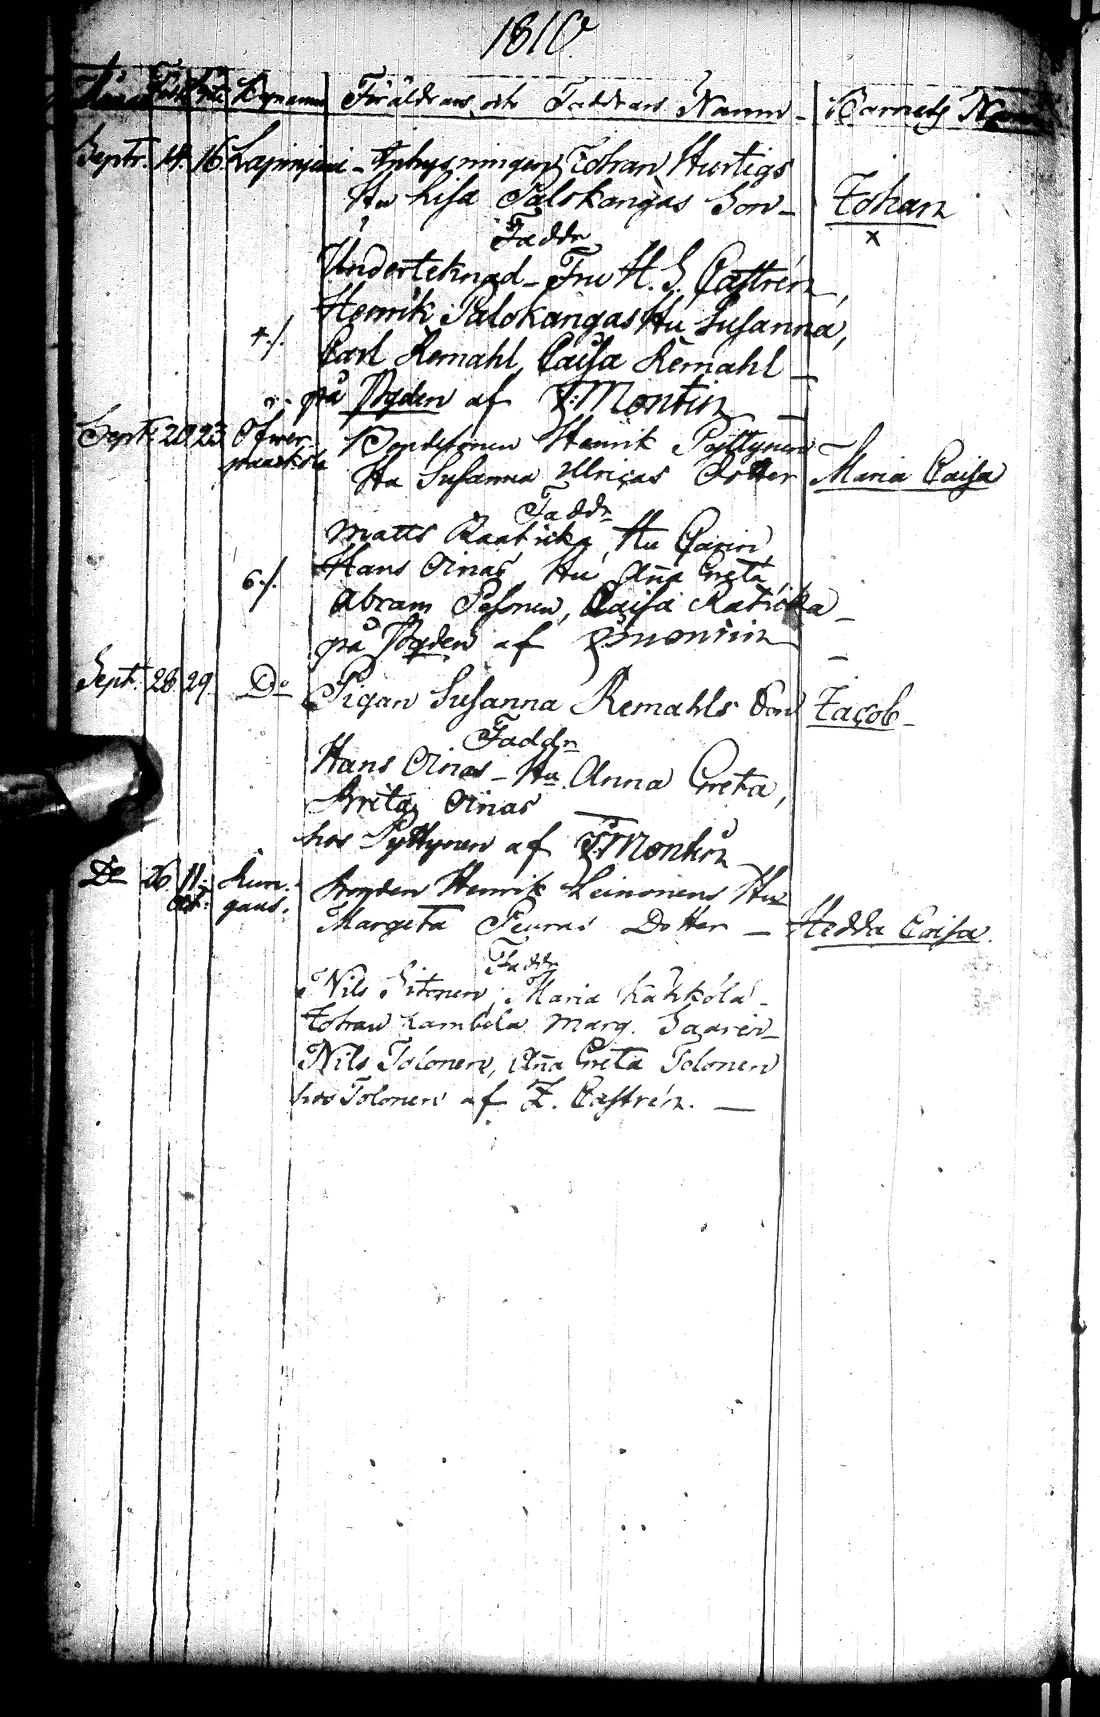 1810
Föräldrars och Faddrars Namn Barnets
Septr. 14. 16. Johan Hurtigs
Hu Lisa Palokangas Son - Johan
Faddr x
Underteknad - Fru H. G. Castrén,
Henrik Palokangas Hu Susanna,
4./. Carl Remahl, Caisa Remahl -
på Bygden af J: Montin
Sept. 20 23 Öfwer Bondesonen Henrik Pyttynen -
Hu Susanna Ulricas Dotter Maria Caisa
Faddr
Matts Raaticka, Hu Carin,
6./. Hans Oinas, Hu Aña Greta,
Abram Pesonen, Caisa Raticka -
på Bygden af J: Montin -
Sept. 28 29. Do Pigan Susanna Remahls Son Jacob -
Faddr
Hans Oinas - Hu Anna Greta,
Brita Oinas
hos Pyttynen af J: Montin
Do 26 11. Henrik Leinonens Hu
Oct. Margeta Dotter - Hedda Caisa.
Faddr
Nils Maria
Johan Marg.
Nils Tolonen, Aña Greta Tolonen
hos Tolonen af Z. Castrén. -